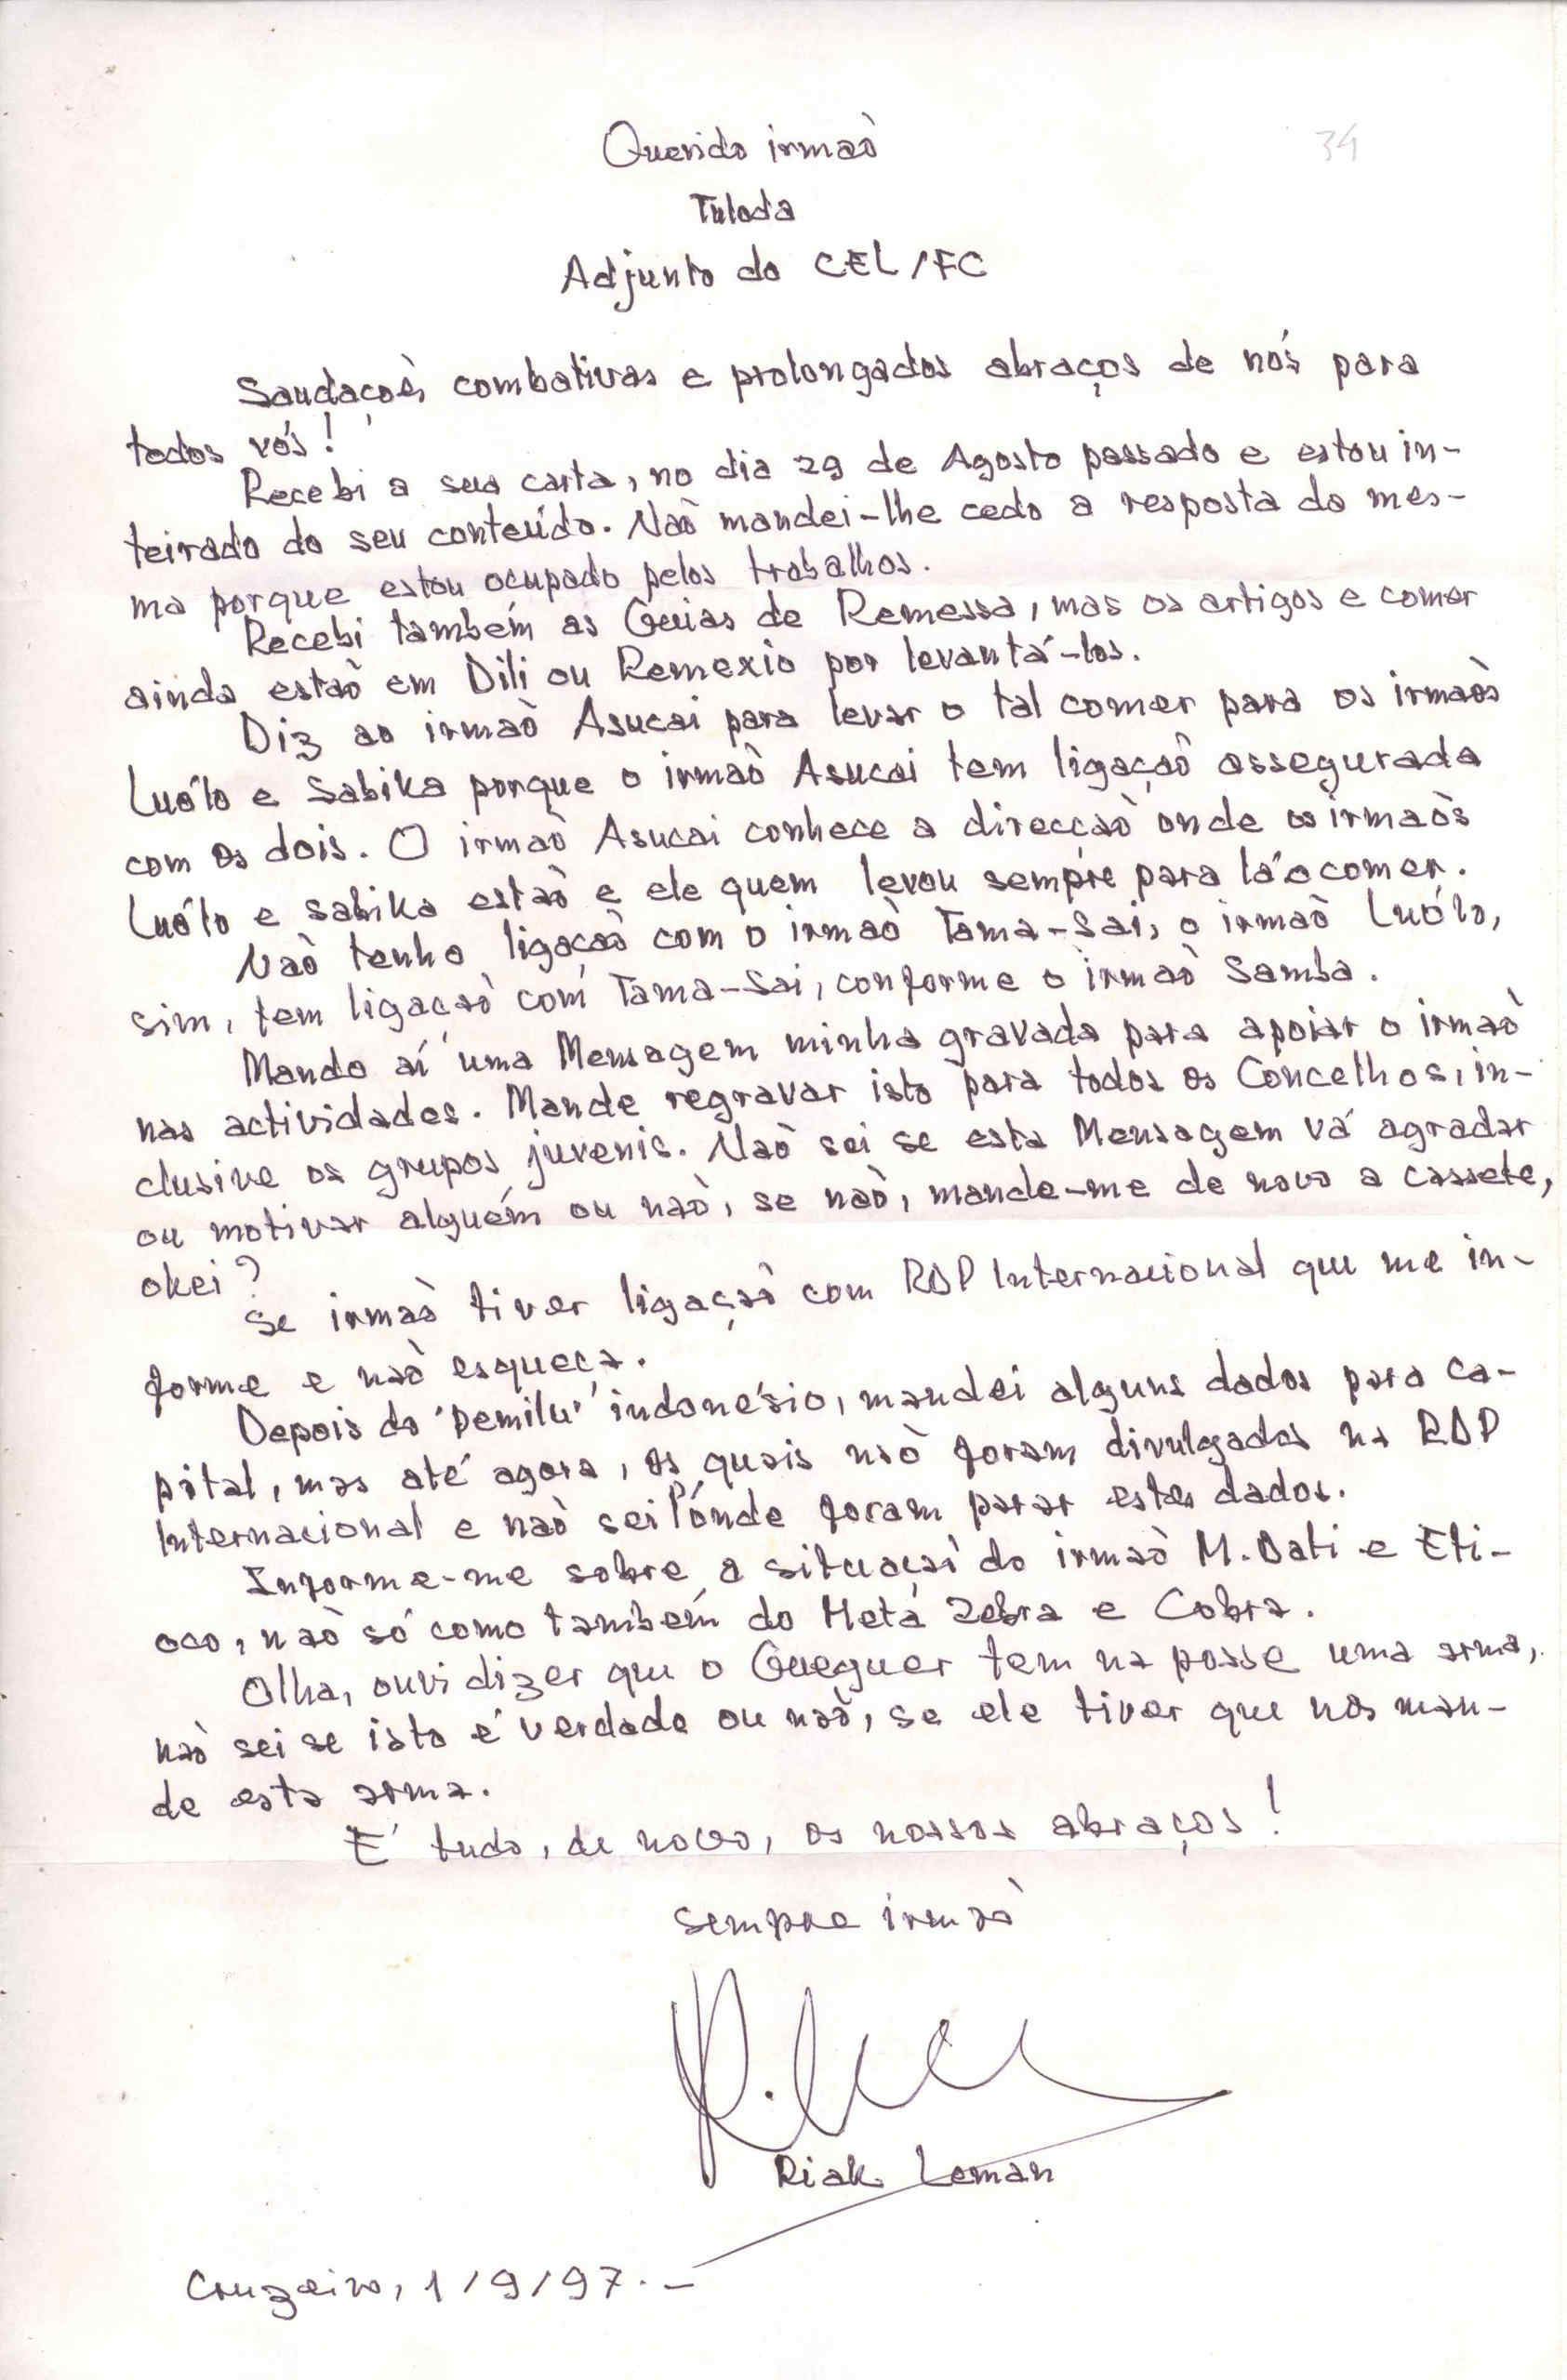 34
Querido irmaò
Tuloda
Adjunto do CEL/FC
Saudaçoès combativas e prolongados abraços de nós para
todos vós!
Recebi a sua carta, no dia 29 de Agosto passado e estou in-
teirado do seu conteúdo. Naò mandei-lhe cedo a resposta do mes-
ma porque estou ocupado pelos trabalhos.
Recebi também as Guias de Remessa, mas os artigos e comer
ainda estaò em Dili ou Remexio por levantá-los.
Diz ao irmaò Asucai para levar o tal comer para os irmaòs
Luólo e Sabika porque o irmaò Asucai tem ligaçaò assegurada
com os dois. O irmaò Asucai conhece a direcçaò onde os irmaòs
Luólo e Sabika estaò e ele quem levou sempre para lá o comer.
Naò tenho ligaçaò com o irmaò Tama-Sai, o irmaò Luólo,
sim, tem ligaçaò com Tama-Sai, conforme o irmaò Samba.
Mando aí uma Mensagem minha gravada para apoiar o irmaò
nas actividades. Mande regravar isto para todos os Concelhos, in-
clusive os grupos juvenis. Naò sei se esta Mensagem vá agradar
ou motivar alguém ou naò, se naò, mande-me de novo a cassete,
okei?
Se irmaò tiver ligaçaò com RDP Internacional que me in-
forme e naò esqueça.
Depois do 'pemilu' indonésio, mandei alguns dados para ca-
pital, mas até agora, os quais naò foram divulgados na RDP
Internacional e naò sei p'ónde foram parar estes dados.
Informe-me sobre a situaçaò do irmaò M. Dati e Eti-
oco, naò só como também do Metá Zebra e Cobra.
Olha, ouvi dizer que o Gueguer tem na posse uma arma,
naò sei se isto é verdade ou naò, se ele tiver que nos man-
de esta arma.
É tudo, de novo, os nossos abraços!
Sempre irmaò
Riak Leman
Cruzeiro, 1/9/97.-